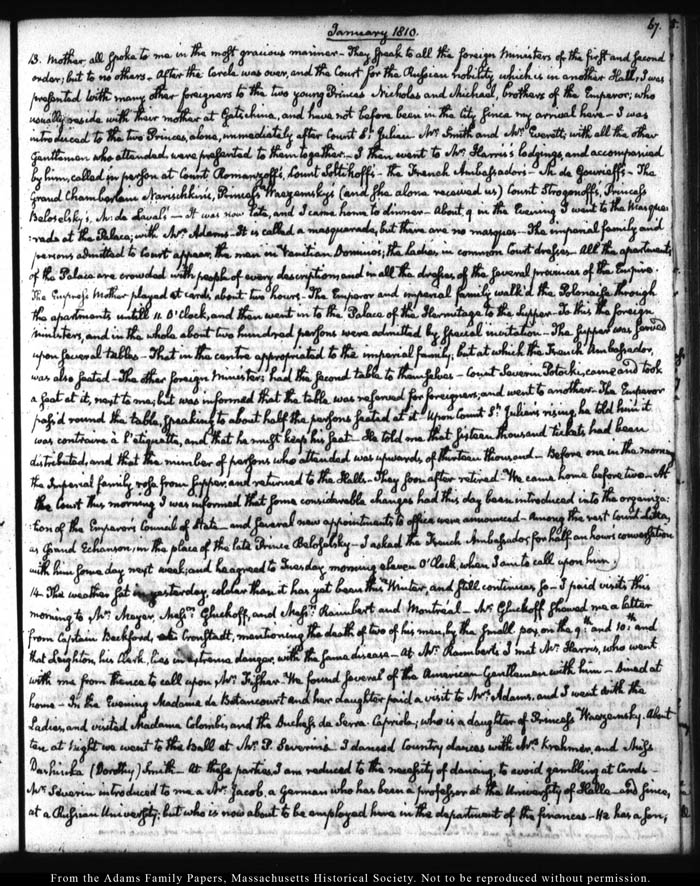 January 1810.
67.
13. Mother, all spoke to me in the most gracious manner — They speak to all the foreign Ministers of the first and second
order; but to no others — After the Cercle was over, and the Court for the Russian nobility which is in another Hall; I was
presented with many other foreigners to the two young Princes Nicholas and Michael, brothers of the Emperor; who
usually reside with their mother at Gatschina, and have not before been in the City since my arrival here — I was
introduced to the two Princes, alone, immediately after Count St. Julien Mr. Smith and Mr. Everett; with all the other
Gentlemen who attended, were presented to them together — I then went to Mr. Harris's lodgings, and accompanied
by him, called in person at Count Romanzoff's, Count Soltikoff's — the French Ambassadors — M. de Gourieff's — The
Grand Chamberlain Narischkin's, Princess Waezemsky's (and she alone received us) Count Strogonoff's, Princess
Beloselsky's, M. de Laval's — It was now late, and I came home to dinner — About 9 in the Evening, I went to the Masque-
rade at the Palace; with Mrs. Adams — It is called a masquerade, but there are no masques — The imperial family and
persons admitted to Court appear, the men in Venetian Dominos; the ladies, in common Court dresses — All the apartments
of the Palace are crowded with people of every description; and in all the dresses, of the several provinces of the Empire.
The Empress Mother played at cards, about two hours — The Emperor and imperial family walk'd the Polonaise through
the apartments untill 11. O'Clock, and then went in to the Palace of the Hermitage to the supper — To this the foreign
Ministers, and in the whole about two hundred persons were admitted by special invitation — The supper was served
upon several tables — That in the centre appropriated to the imperial family; but at which the French Ambassador,
was also seated — The other foreign Ministers; had the second table to themselves — Count Severin Potocki, came and took
a seat at it, next to me; but was informed that the table was reserved for foreigners; and went to another — The Emperor
pass'd round the table, speaking to about half the persons seated at it — Upon Count St. Julien's rising, he told him it
was contraire a l'etiquette, and that he must keep his seat — He told me that sixteen thousand tickets had been
distributed, and that the number of persons who attended was upwards of thirteen thousand — Before one in the morning
the Imperial family, rose from supper, and returned to the Halls — They soon after retired — We came home before two — At
the Court this morning I was informed that some considerable changes had this day been introduced into the organiza-
tion of the Emperor's Council of State — and several new appointments to office were announced — Among the rest Count
as Grand Echanson, in the place of the late Prince Beloselsky — I asked the French Ambassador, for half an hours conversation
with him some day next week; and he agreed to Tuesday morning eleven O'Clock, when I am to call upon him.
14. The weather set in yesterday, colder than it has yet been this Winter, and still continues so — I paid visits this
morning to Mr. Meyer, Messrs. Gluckoff, and Messrs. Raimbert and Montreal — Mr. Gluckoff showed me a letter
from Captain Beckford, at Cronstadt, mentioning the death of two of his men, by the small pox, on the 9th and 10th and
that Leighton, his Clerk, lies in extreme danger, with the same disease — At Mr. Raimbert's I met Mr. Harris, who went
with me from thence to call upon Mr. Fisher — We found several of the American Gentlemen with him — Dined at
home — In the Evening Madame de Betancourt and her daughter paid a visit to Mrs. Adams, and I went with the
Ladies, and visited Madame Colombi, and the Duchess de Serra-Capriola; who is a daughter of Princess Waezemsky. About
ten at Night we went to the Ball at Mr. P. Severin's. I danced Country dances with Mrs. Krehmer, and Miss
Dashinka (Dorothy) Smith — At these parties, I am reduced to the necessity of dancing, to avoid gambling at Cards —
Mr. Severin introduced to me a Mr. Jacob, a German who has been a professor at the University of Halle — and since,
at a Russian University; but who is now about to be employed here in the department of the finances — He has a son,
From the Adams Family Papers, Massachusetts Historical Society. Not to be reproduced without permission.